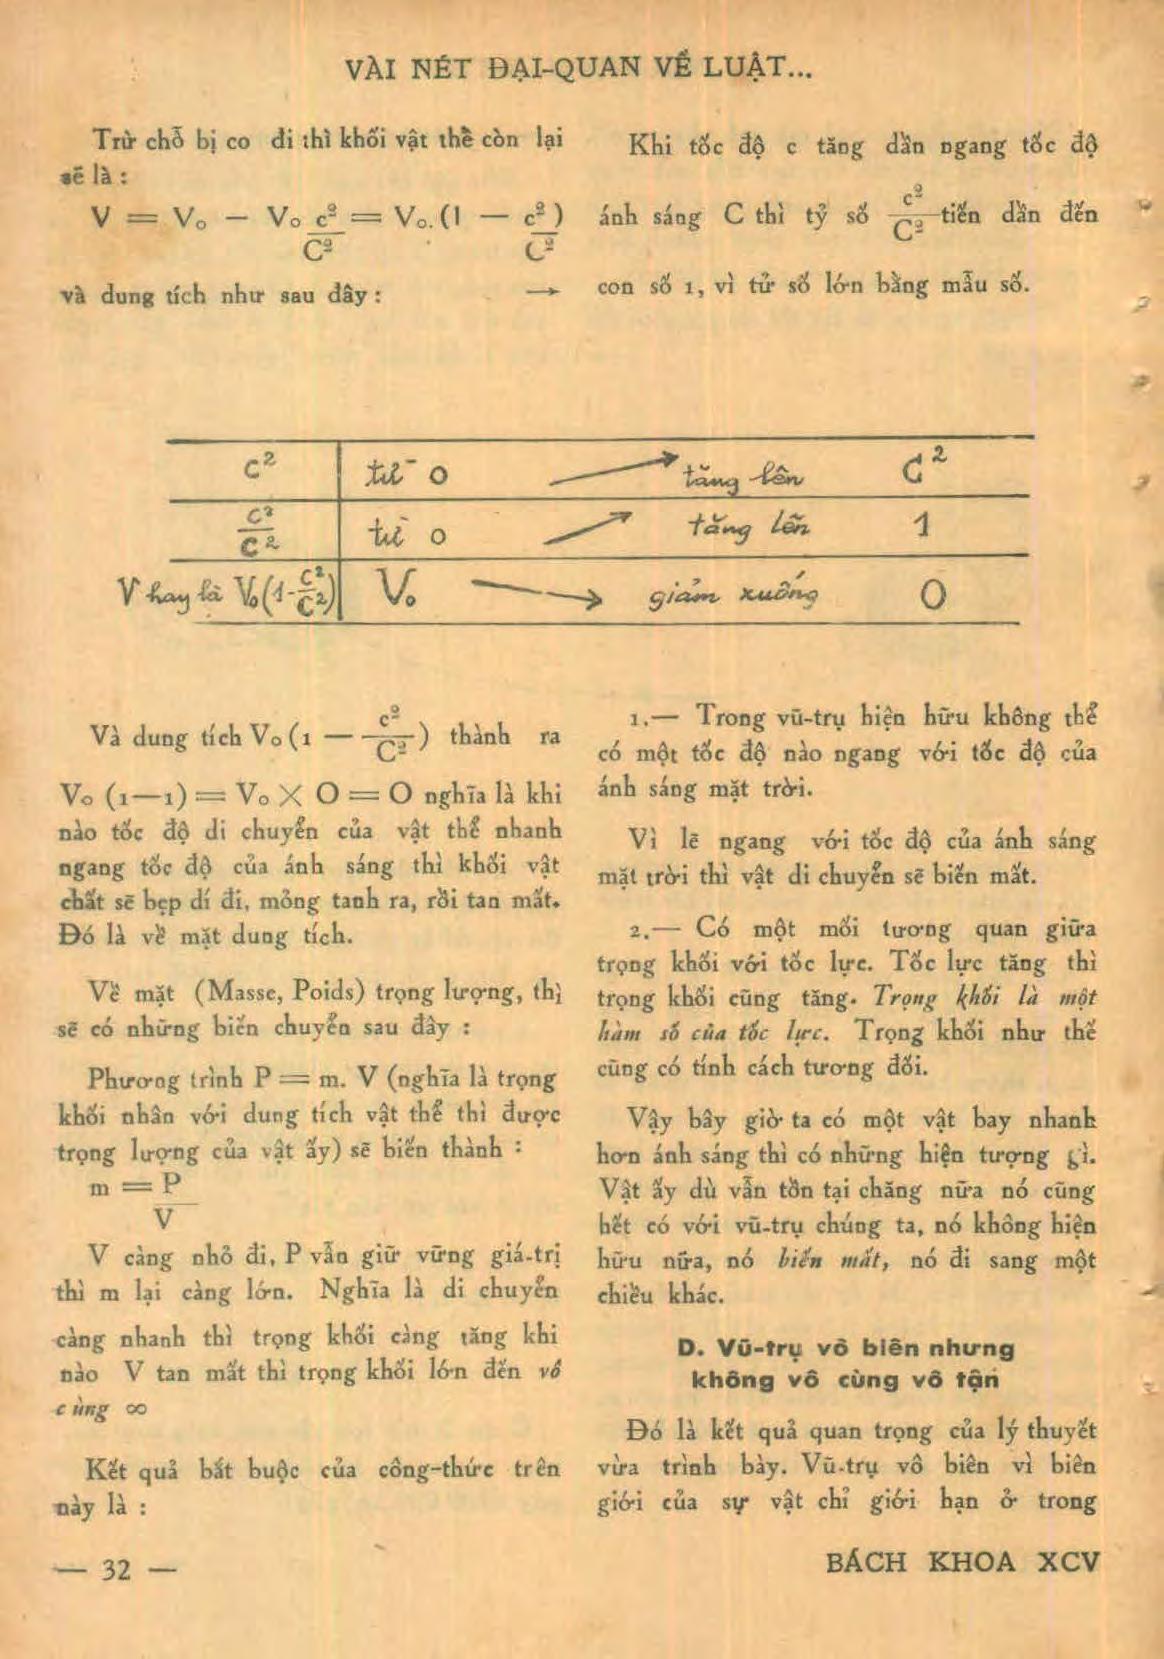 VÀI NÉT ĐẠI-QUAN VỀ LUẬT...
Trừ chỗ bị co đi thì khối vật thể còn lại
sẽ là :
V = Vo — Vo c²/C² = Vo. (1 — c²/C²)
và dung tích như sau đây : →
Khi tốc độ c tăng dần ngang tốc độ
ánh sáng C thì tỷ số c²/C² tiến dần đến
con số 1, vì tử số lớn bằng mẫu số.
C² từ 0 → tăng lên C²
C²/C² từ 0 → tăng lên 1
V hay là Vo(1-C²/C²) Vo → giảm xuống 0
Và dung tích Vo (1 — c²/C²) thành ra
Vo (1—1) = Vo X O = O nghĩa là khi
nào tốc độ di chuyển của vật thể nhanh
ngang tốc độ của ánh sáng thì khối vật
chất sẽ bẹp dí đi, mỏng tanh ra, rồi tan mất.
Đó là về mặt dung tích.
Về mặt (Masse, Poids) trọng lượng, thị
sẽ có những biến chuyển sau đây :
Phương trình P = m. V (nghĩa là trọng
khối nhân với dung tích vật thể thì được
trọng lượng của vật ấy) sẽ biến thành :
m = P
V
V càng nhỏ đi, P vẫn giữ vững giá-trị
thì m lại càng lớn. Nghĩa là di chuyển
càng nhanh thì trọng khối càng tăng khi
nào V tan mất thì trọng khối lớn đến vô
cùng ∞
Kết quả bắt buộc của công-thức trên
này là :
1.— Trong vũ-trụ hiện hữu không thể
có một tốc độ nào ngang với tốc độ của
ánh sáng mặt trời.
Vì lẽ ngang với tốc độ của ánh sáng
mặt trời thì vật di chuyển sẽ biến mất.
2.— Có một mối tương quan giữa
trọng khối với tốc lực. Tốc lực tăng thì
trọng khối cũng tăng. Trọng khối là một
hàm số của tốc lực. Trọng khối như thế
cũng có tính cách tương đối.
Vậy bây giờ ta có một vật bay nhanh
hơn ánh sáng thì có những hiện tượng gì.
Vật ấy dù vẫn tồn tại chăng nữa nó cũng
hết có với vũ-trụ chúng ta, nó không hiện
hữu nữa, nó biến mất, nó đi sang một
chiều khác.
D. Vũ-trụ vô biên nhưng
không vô cùng vô tận
Đó là kết quả quan trọng của lý thuyết
vừa trình bày. Vũ-trụ vô biên vì biên
giới của sự vật chỉ giới hạn ở trong
— 32 —
BÁCH KHOA XCV